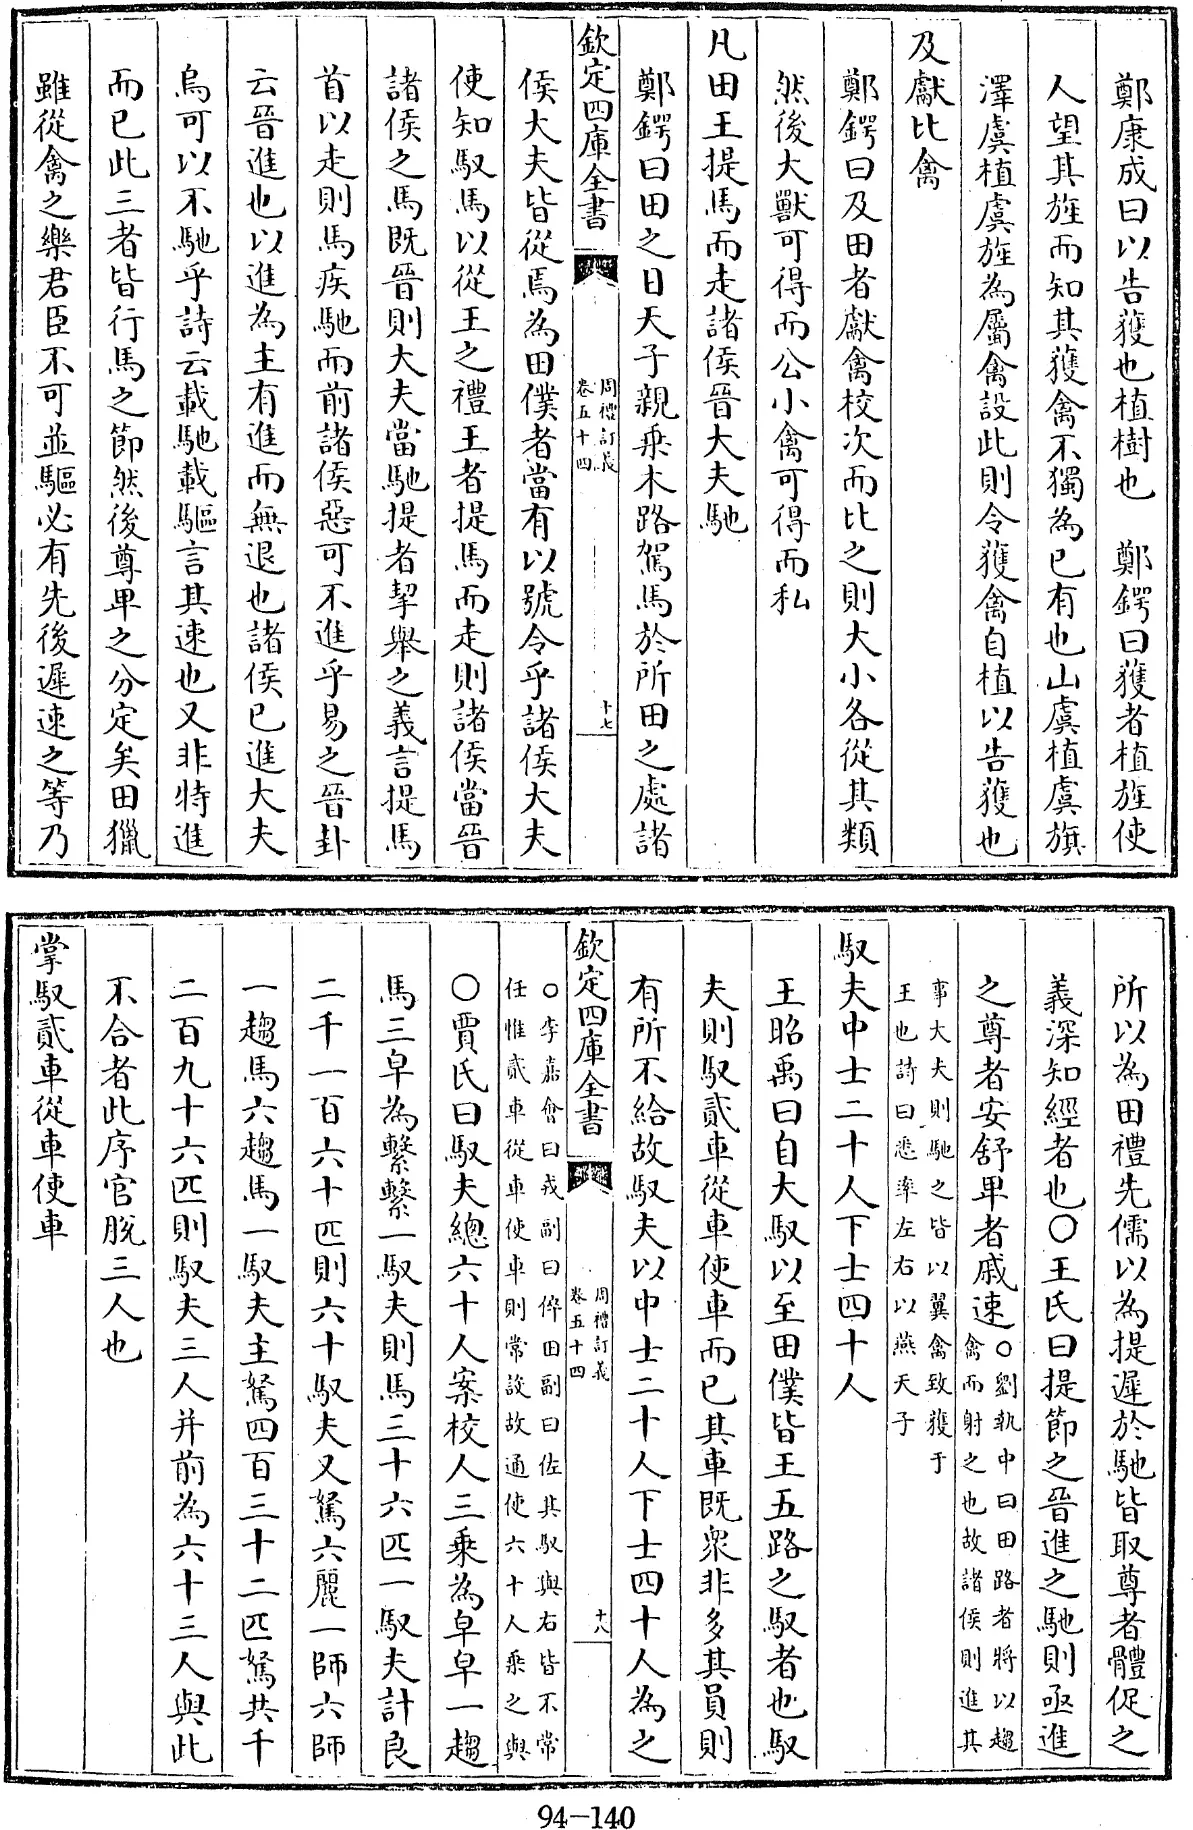 鄭康成曰以告獲也植樹也　鄭鍔曰獲者植旌使
人望其旌而知其獲禽不獨為已有也山虞植虞旗
澤虞植虞旌為屬禽設此則令獲禽自植以告獲也
及獻比禽
鄭鍔曰及田者獻禽校次而比之則大小各從其類
然後大獸可得而公小禽可得而私
凡田王提馬而走諸侯晉大夫馳
鄭鍔曰田之日天子親乗木路駕馬於所田之處諸
欽定四庫全書
周禮訂義
卷五十四
十七
侯大夫皆從焉為田僕者當有以號令乎諸侯大夫
使知馭馬以從王之禮王者提馬而走則諸侯當晉
諸侯之馬既晉則大夫當馳提者挈舉之義言提馬
首以走則馬疾馳而前諸侯惡可不進乎易之晉卦
云晉進也以進為主有進而無退也諸侯已進大夫
烏可以不馳乎詩云載馳載驅言其速也又非特進
而已此三者皆行馬之節然後尊卑之分定矣田獵
雖從禽之樂君臣不可並驅必有先後遲速之等乃
所以為田禮先儒以為提遲於馳皆取尊者體促之
義深知經者也〇王氏曰提節之晉進之馳則亟進
之尊者安舒卑者戚速〇劉執中曰田路者將以趨
禽而射之也故諸侯則進其
事大夫則馳之皆以翼禽致獲于
王也詩曰悉率左右以燕天子
馭夫中士二十人下士四十人
王昭禹曰自大馭以至田僕皆王五路之馭者也馭
夫則馭貳車從車使車而已其車既衆非多其員則
有所不給故馭夫以中士二十人下士四十人為之
欽定四庫全書
周禮訂義
卷五十四
十八
〇李嘉會曰戎副曰倅田副曰佐其馭與右皆不常
任惟貳車從車使車則常設故通使六十人乗之與
〇賈氏曰馭夫總六十人案校人三乗為皁皁一趨
馬三皁為繫繫一馭夫則馬三十六匹一馭夫計良
二千一百六十匹則六十馭夫又駑六麗一師六師
一趨馬六趨馬一馭夫主駑四百三十二匹駑共千
二百九十六匹則馭夫三人并前為六十三人與此
不合者此序官脫三人也
掌馭貳車從車使車
94-140